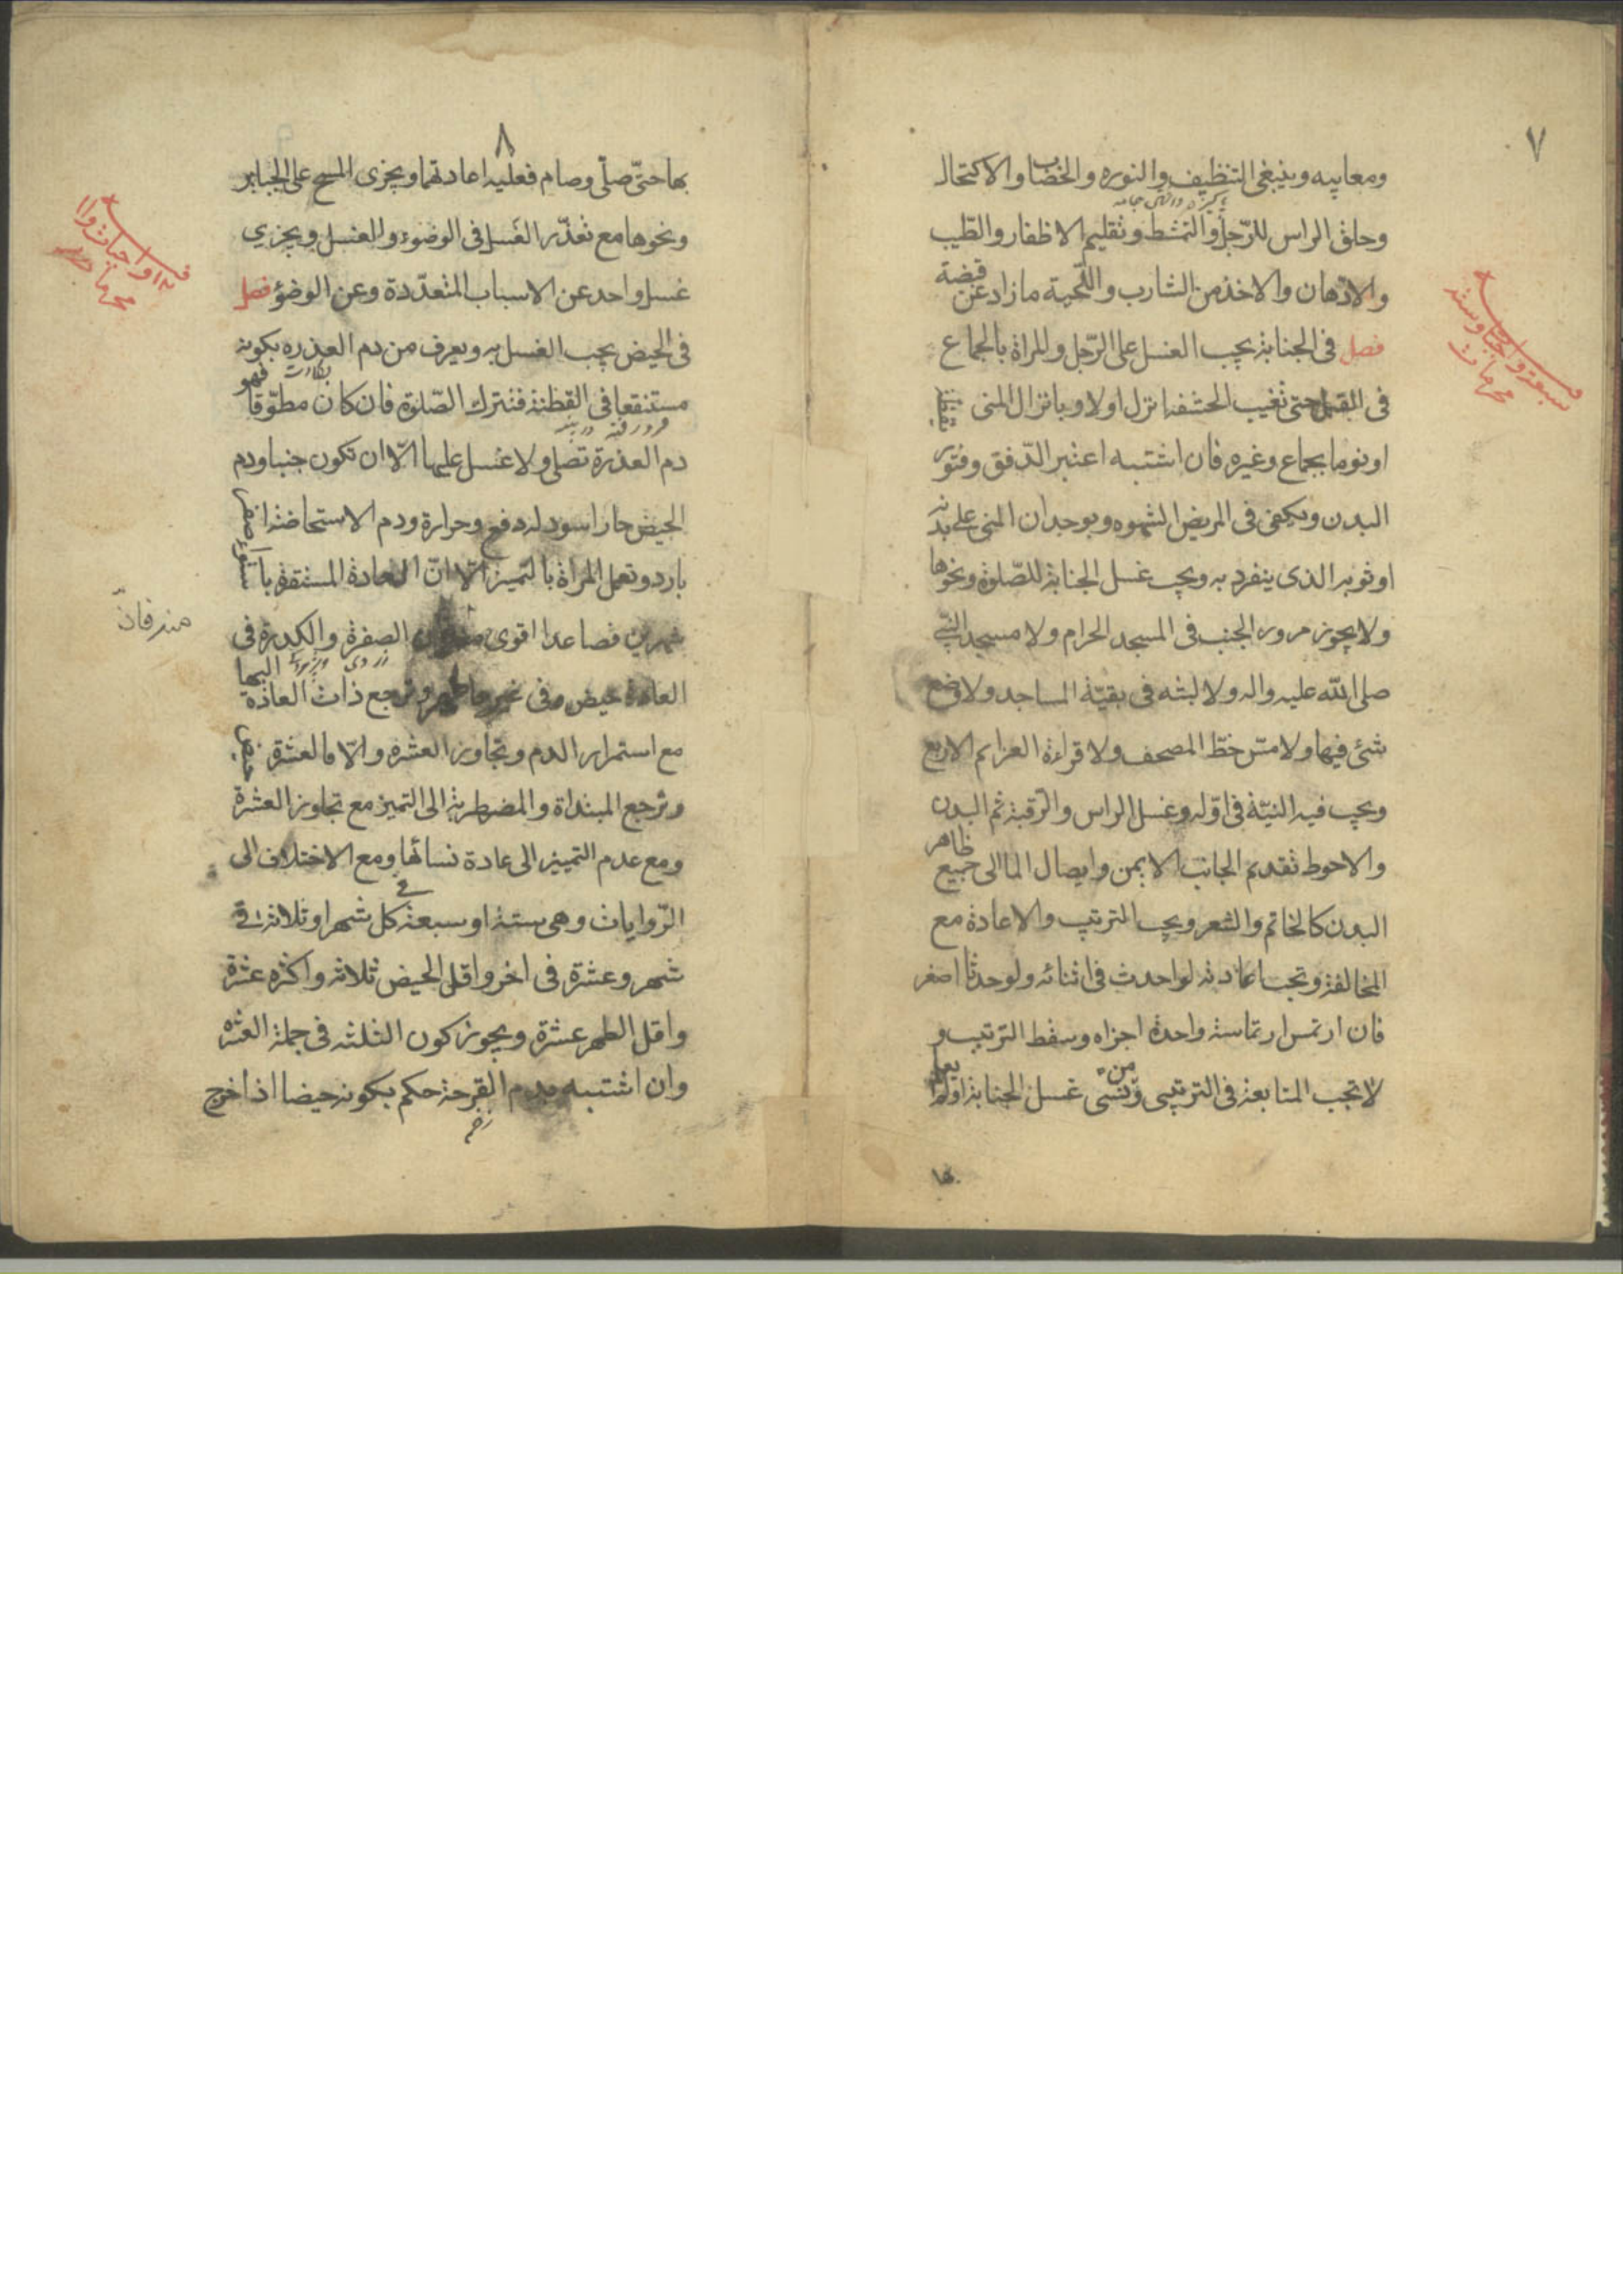 ٧
ومعايبه وينبغى التنظيف والنوره والخضاب والاكتحال
وحلق الراس للرّجل والتمشط وتقليم الاظفار والطّيب
والادهان والاخذ من الشارب واللّحية مازاد عن قبضة
فصل فى الجنابة يجب الغسل على الرّجل والمراة بالجماع
فى القبل حتى تغيب الحشفه انزل اولا وبانزال المنى يقظة
او نوما بجماع وغيره فان اشتبه اعتبر الدّفق وفتور
البدن ويكفى فى المريض الشهوه وبوجدان المنى على بدنه
او ثوبه الذى ينفرد به ويجب غسل الجنابة للصّلوة ونحوها
ولا يجوز مرور الجنب فى المسجد الحرام ولا مسجد النبىّ
صلى اللّه عليه واله ولا لبثه فى بقيّة المساجد ولا وضع
شئ فيها ولا مسّ خطّ المصحف ولا قراءة العزايم الاربع
ويجب فيه النيّة فى اوّله وغسل الراس والرّقبة ثم البدن
والاحوط تقديم الجانب الايمن وايصال الما الى جميع ظاهر
البدن كالخاتم والشعر ويجب الترتيب والاعادة مع
المخالفة وتجب اعادته لو احدث فى اثنائه ولو حدثا اصغر
فان ارتمس ارتماسة واحدة اجزاه وسقط الترتيب و
لا تجب المتابعة فى الترتيبى ومن نسى غسل الجنابة اولم يعلم
بها
سبعة واجبات وستة
محرمات
٨
بها حتىّ صلّى وصام فعليه اعادتهما ويجزى المسح على الجباير
ونحوها مع تعذّر الغَسل فى الوضوء والغسل ويجزي
غسل واحد عن الاسباب المتعدّدة وعن الوضؤ فصل
فى الحيض يجب الغسل به ويعرف من دم العذره بكونه
مستنقعا فى القطنة فتترك الصّلوة فان كان مطوّقا فهو
دم العذرة تصلى ولا غسل عليها الّا ان تكون جنبا ودم
الحيض حار اسود له دفع وحرارة ودم الاستحاضة اصفر
بارد وتعمل المراة بالتّميز الّا انّ العادة المستقرة باستواء
شهرين فصاعدا اقوى منه فان الصفرة والكدرة فى
العادة حيض وفى غيرها طهر وترجع ذات العادة اليها
مع استمرار الدم وتجاوز العشره والّا فالعشرة حيض
وترجع المبتداة والمضطربة الى التميز مع تجاوز العشرة
ومع عدم التمييز الى عادة نسائها ومع الاختلاف الى
الرّوايات وهى ستة او سبعة فى كل شهر او ثلاثة فى
شهر وعشرة فى اخر واقل الحيض ثلاثه واكثره عشرة
واقل الطهر عشرة ويجوز كون الثلثه فى جملة العشره
وان اشتبه بدم القرحة حكم بكونه حيضا اذا خرج
منه فانّ